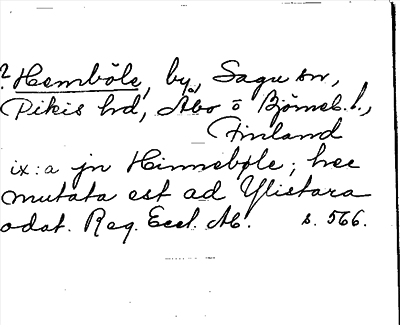 ? Hemböle, by, Sagu sn,
Pikis hrd, Åbo o Björneb. l.,
Finland
ix: a jn Hinnebøle; hec
mutata est ad Ylistara
odat. Reg. Eccl. Ab. s. 566.